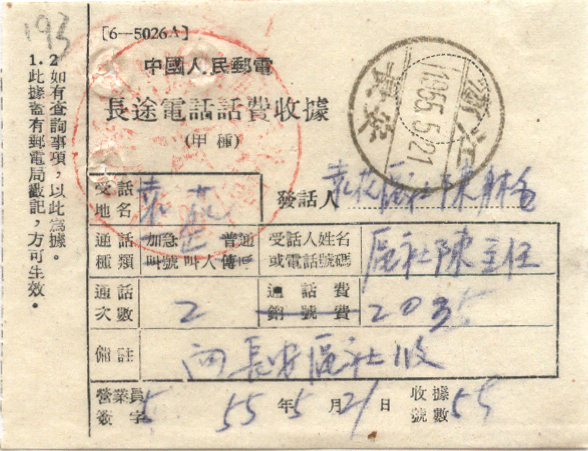 193
[6—5026A]
中國人民郵電
長途電話話費收據
(甲種)
浙江
1955.5.21
長安
受話地名
袁花
發話人
袁花區社陳
通話種類
加急 普通
叫號 叫人 傳呼
受話人姓名或電話號碼
區社陳主任
通話次數
2
通話費
銷號費
2035
備註
向長安區社收
營業員簽字
5
55年5月21日
收據號數
55
1.此據蓋有郵電局戳記，方可生效。
2如有查詢事項，以此為據。